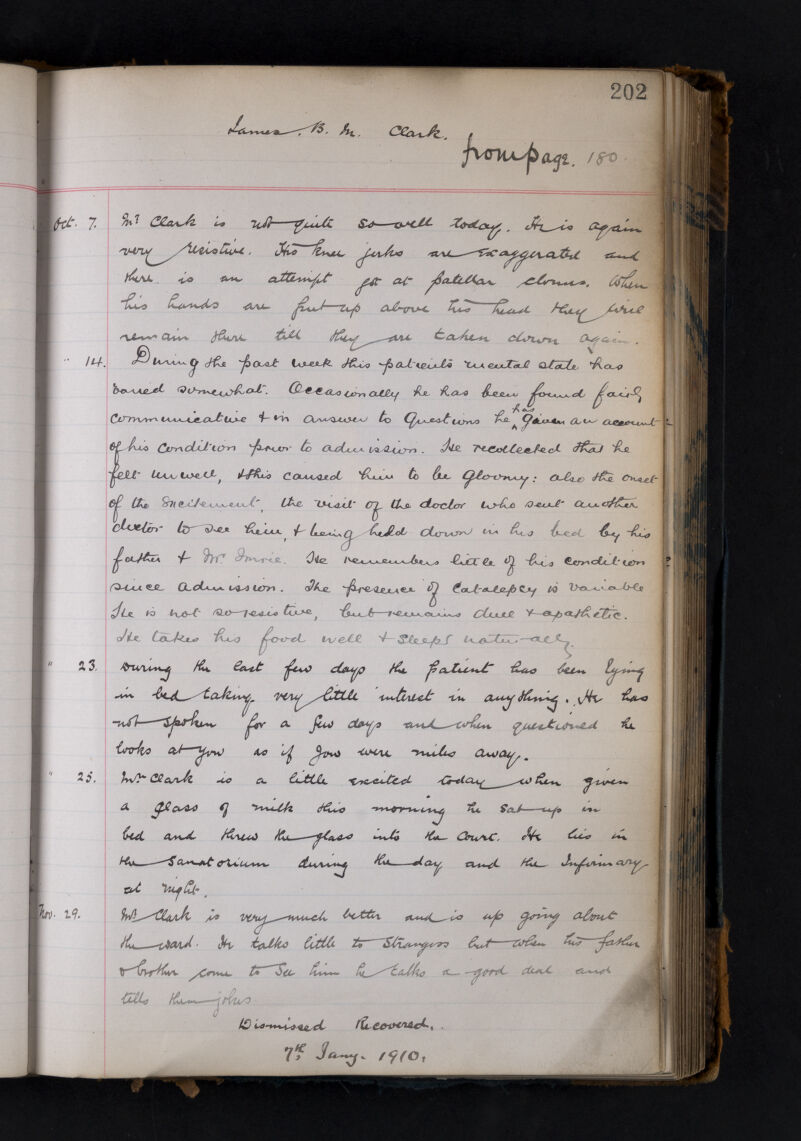 202
James. B. M. Clark.
from page. 180
Oct. 7. Mr Clark is not quite so well today. He is again
very resistive. His knee jerks are exaggerated and
there is an attempt got at patellar clonus. When
his hands are put up above his head they will
remain there till they are taken down again.
" 14. During the past week this patient's mental state has
varied somewhat. Occasionally he has been found fairly
communicative & in answer to Questions he has given an account
of his condition prior to admission. He recollected that he
felt unwell, & this caused him to be gloomy: also the onset
of the excitement, the visit of the doctor who sent another
doctor to see him, & being held down in his bed by his
father & Mr Imrie. He remembers little of his condition
since admission. The presence of Catalepsy is variable
He is not so resistive, but remains dull & apathetic.
He takes his food well & sleeps naturally.
" 23. During the last few days the patient has been lying
in bed taking very little interest in anything. He has
not spoken for a few days and when questioned he
looks at you as if you were miles away.
" 25. Mr Clark is a little excited today when given
a glass of milk this morning he sat up in
bed and threw the glass into the Court. He lies in
the Sanatorium during the day and the Infirmary
at night.
Nov. 29. Mr Clark is very much better and is up going about
the ward. He talks little to Strangers but when his father
& brother come to see him he talks a good deal and
tells them jokes
Dismissed Recovered.
7th Jany. 1910.